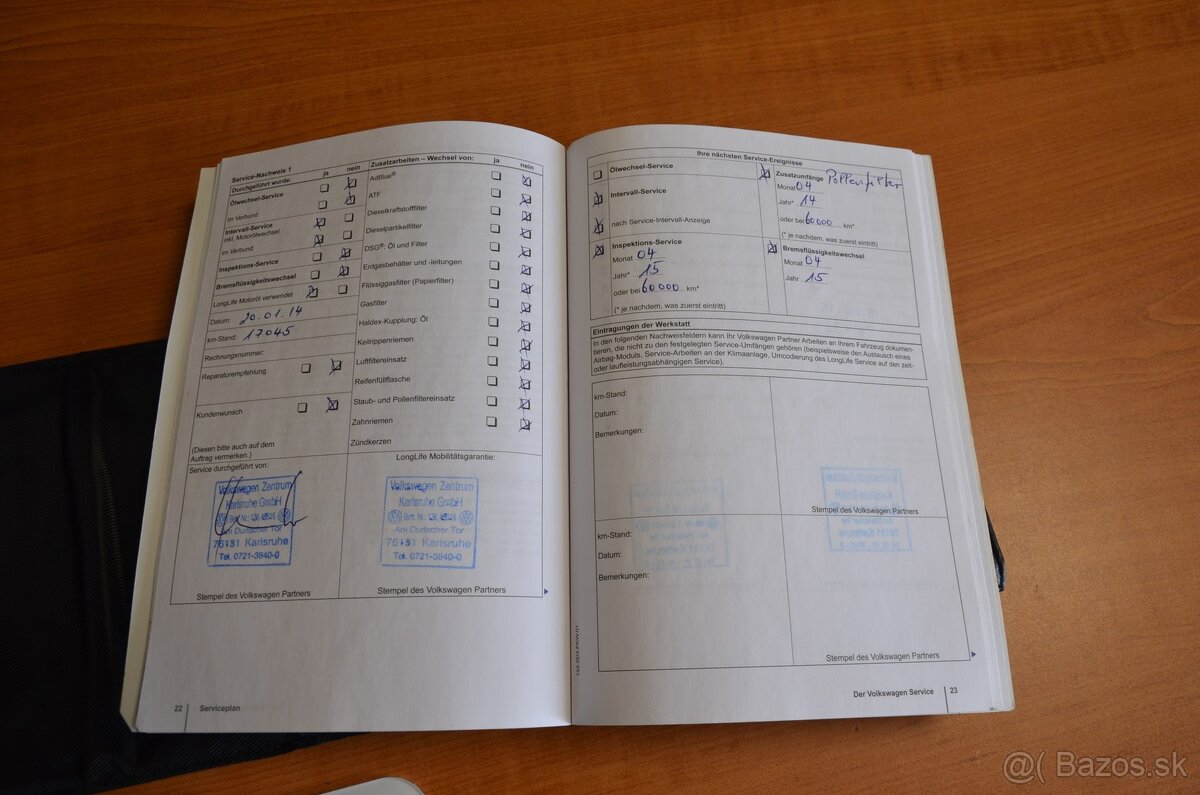 Service-Nachweis 1
Durchgeführt wurde: ja nein
Ölwechsel-Service
im Verbund
Intervall-Service
inkl. Motorölwechsel
im Verbund
Inspektions-Service
Bremsflüssigkeitswechsel
LongLife Motoröl verwendet
Datum: 20.01.14
km-Stand: 17045
Rechnungsnummer:
Reparaturempfehlung
Kundenwunsch
(Diesen bitte auch auf dem
Auftrag vermerken.)
Zusatzarbeiten – Wechsel von: ja nein
AdBlue®
ATF
Dieselkraftstofffilter
Dieselpartikelfilter
DSG®: Öl und Filter
Erdgasbehälter und -leitungen
Flüssiggasfilter (Papierfilter)
Gasfilter
Haldex-Kupplung: Öl
Keilrippenriemen
Luftfiltereinsatz
Reifenfüllflasche
Staub- und Pollenfiltereinsatz
Zahnriemen
Zündkerzen
Service durchgeführt von:
Volkswagen Zentrum
Karlsruhe GmbH
Am Durlacher Tor
76131 Karlsruhe
Tel. 0721-3840-0
Stempel des Volkswagen Partners
LongLife Mobilitätsgarantie:
Volkswagen Zentrum
Karlsruhe GmbH
Am Durlacher Tor
76131 Karlsruhe
Tel. 0721-3840-0
Stempel des Volkswagen Partners
22 Serviceplan
Ihre nächsten Service-Ereignisse
Ölwechsel-Service
Intervall-Service
nach Service-Intervall-Anzeige
Inspektions-Service
Monat 04
Jahr* 15
oder bei 60000 km*
(* je nachdem, was zuerst eintritt)
Zusatzumfänge Pollenfilter
Monat 04
Jahr* 14
oder bei 60000 km*
(* je nachdem, was zuerst eintritt)
Bremsflüssigkeitswechsel
Monat 04
Jahr 15
Eintragungen der Werkstatt
In den folgenden Nachweisfeldern kann Ihr Volkswagen Partner Arbeiten an Ihrem Fahrzeug dokumen-
tieren, die nicht zu den festgelegten Service-Umfängen gehören (beispielsweise den Austausch eines
Airbag-Moduls, Service-Arbeiten an der Klimaanlage, Umcodierung des LongLife Service auf den zeit-
oder laufleistungsabhängigen Service).
km-Stand:
Datum:
Bemerkungen:
Stempel des Volkswagen Partners
km-Stand:
Datum:
Bemerkungen:
Stempel des Volkswagen Partners
Der Volkswagen Service 23
@( Bazos.sk